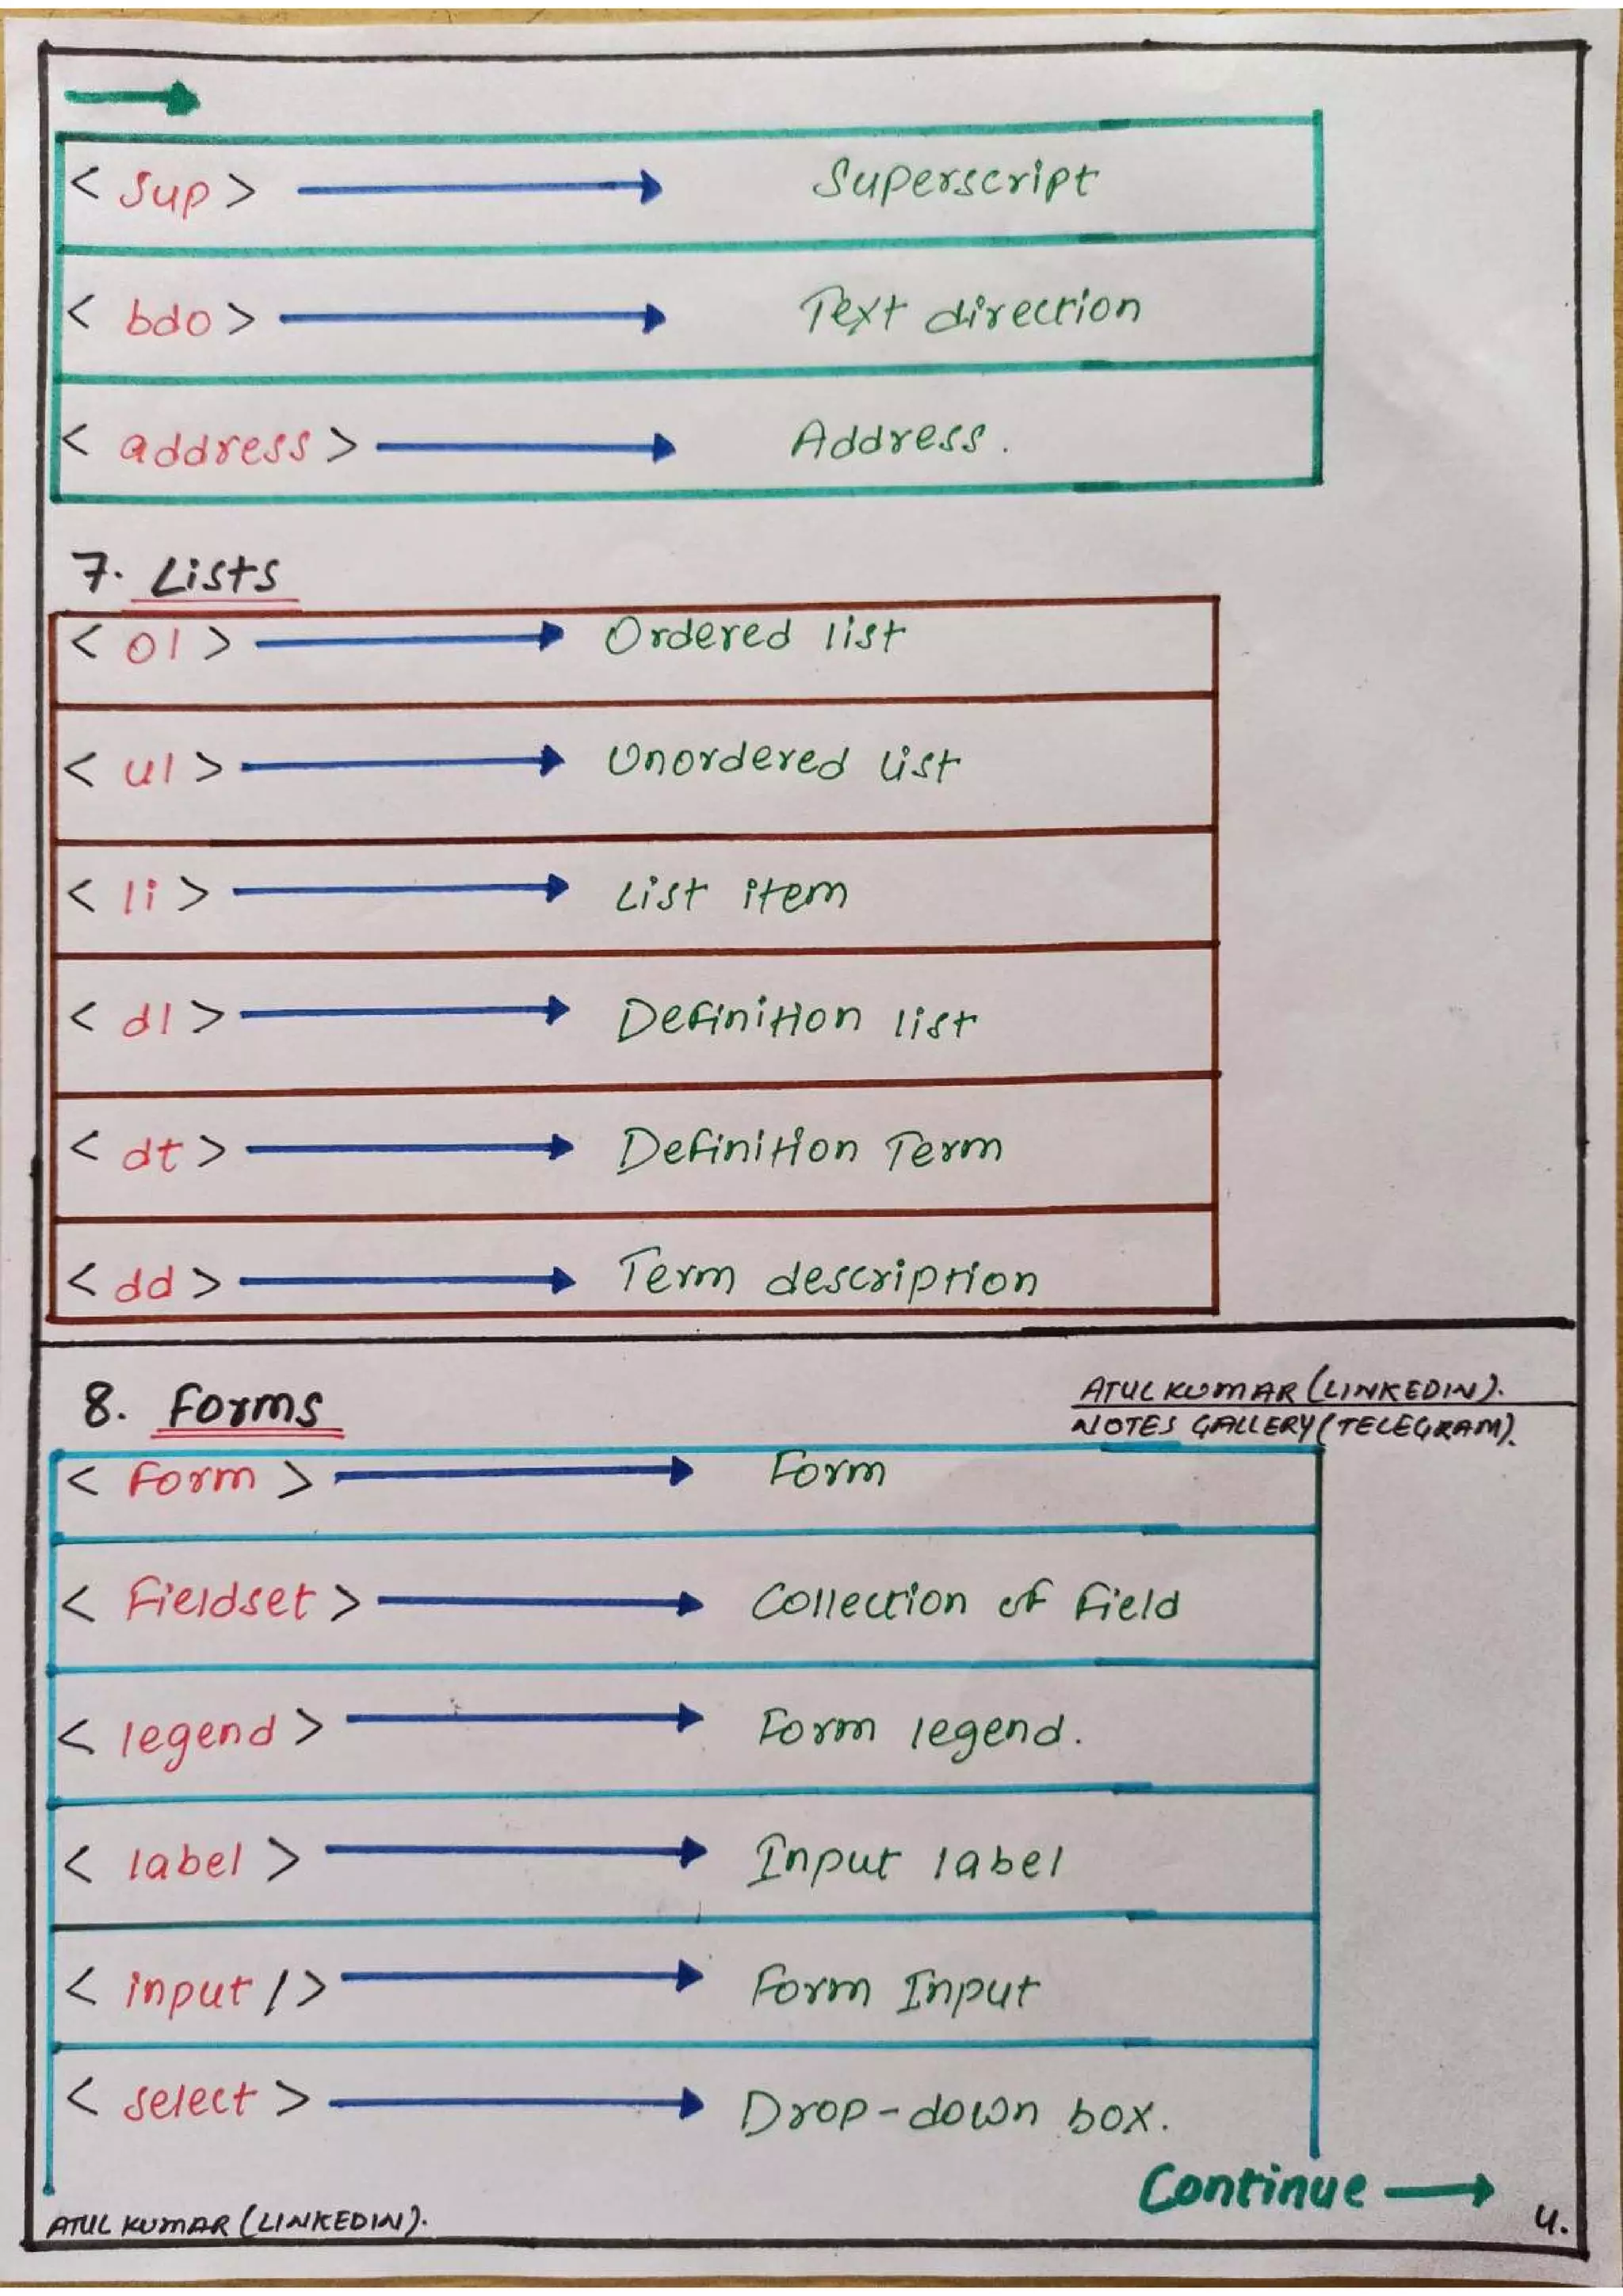 <sup> → Superscript
<bdo> → Text direction
<address> → Address.
7. Lists
<ol> → Ordered list
<ul> → Unordered list
<li> → List item
<dl> → Definition list
<dt> → Definition Term
<dd> → Term description
8. Forms
ATUL KUMAR (LINKEDIN).
NOTES GALLERY (TELEGRAM).
<form> → Form
<fieldset> → Collection of field
<legend> → Form legend.
<label> → Input label
<input /> → Form Input
<select> → Drop-down box.
Continue →
ATUL KUMAR (LINKEDIN).
4.